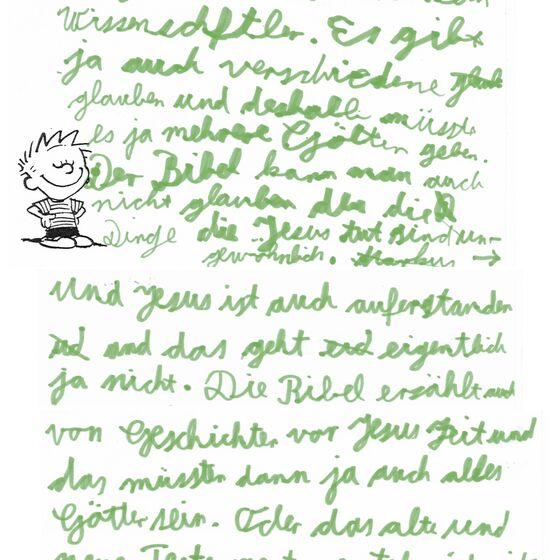 Wissenschftler. Es gibt
ja auch verschiedene
glauben und deshalb müsste
es ja mehrere Götter geben.
Der Bibel kann man auch
nicht glauben den die
Dinge die Jesus tut sind un-
gewöhnlich. →
Und Jesus ist auch auferstanden
und das geht eigentlich
ja nicht. Die Bibel erzählt auch
von Geschichten vor Jesus Zeit und
das müssten dann ja auch alles
Götter sein. Oder das alte und